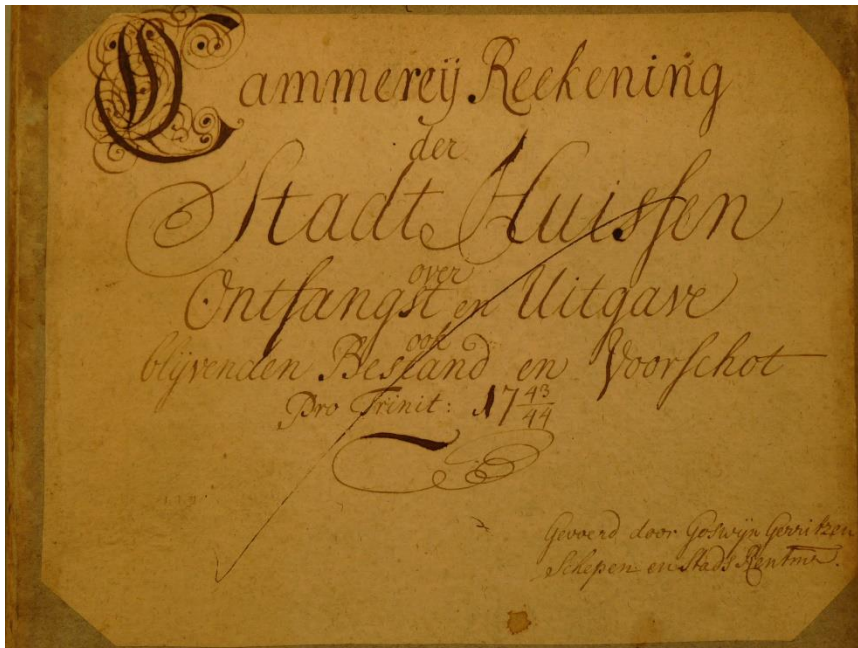 Cammereij Reekening
der
Stadt Huissen
over
Ontfangst en Uitgave
ook
blijvenden Bestand en Voorschot
Pro Trinit: 17 43/44
Gevoerd door Goswijn Gerritzen
Schepen en Stads Rentmr.